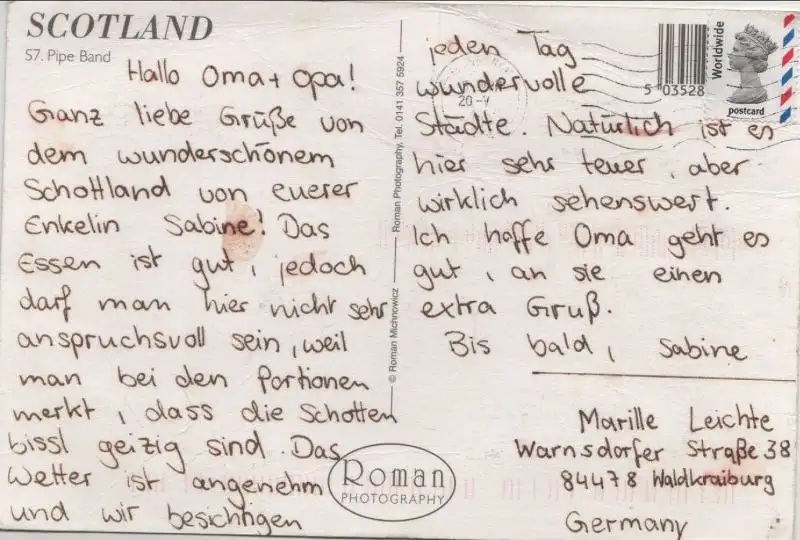 SCOTLAND
57. Pipe Band
Hallo Oma + Opa!
Ganz liebe Grüße von
dem wunderschönem
Schottland von euerer
Enkelin Sabine! Das
Essen ist gut, jedoch
darf man hier nicht sehr
anspruchsvoll sein, weil
man bei den Portionen
merkt, dass die Schotten
bissl geizig sind. Das
Wetter ist angenehm
und wir besichtigen
© Roman Michnowicz — Roman Photography, Tel. 0141 357 5924
Roman
PHOTOGRAPHY
jeden Tag
wundervolle
Städte. Natürlich ist es
hier sehr teuer, aber
wirklich sehenswert.
Ich hoffe Oma geht es
gut, an sie einen
extra Gruß.
Bis bald, Sabine
5 03528
Worldwide
postcard
20-
Marille Leichte
Warnsdorfer Straße 38
84478 Waldkraiburg
Germany